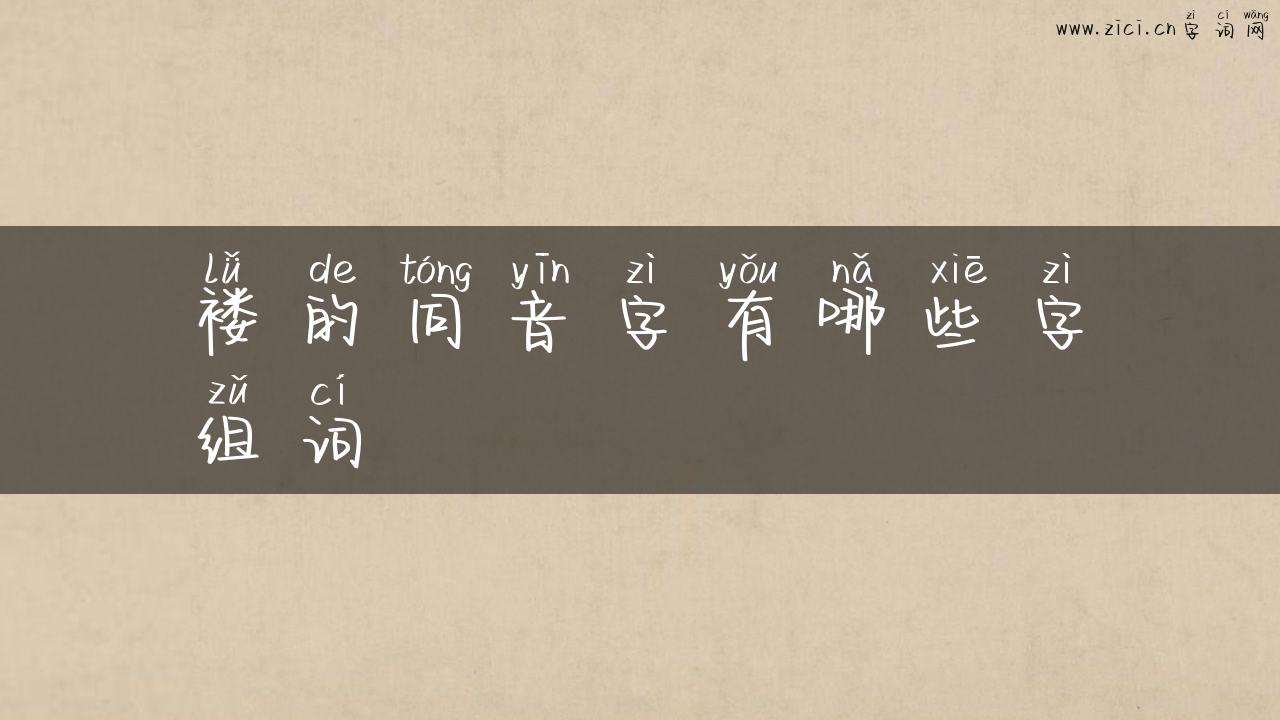 zì cí wǎng
www.zici.cn 字词网
lǚ de tóng yīn zì yǒu nǎ xiē zì
褛的同音字有哪些字
zǔ cí
组词